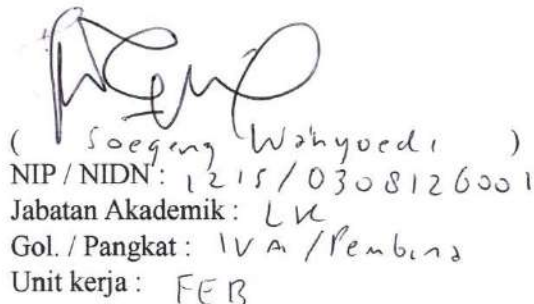 ( Soegeng Wahyoedi )
NIP / NIDN : 1215 / 0308126001
Jabatan Akademik : LK
Gol. / Pangkat : IV A / Pembina
Unit kerja : FEB